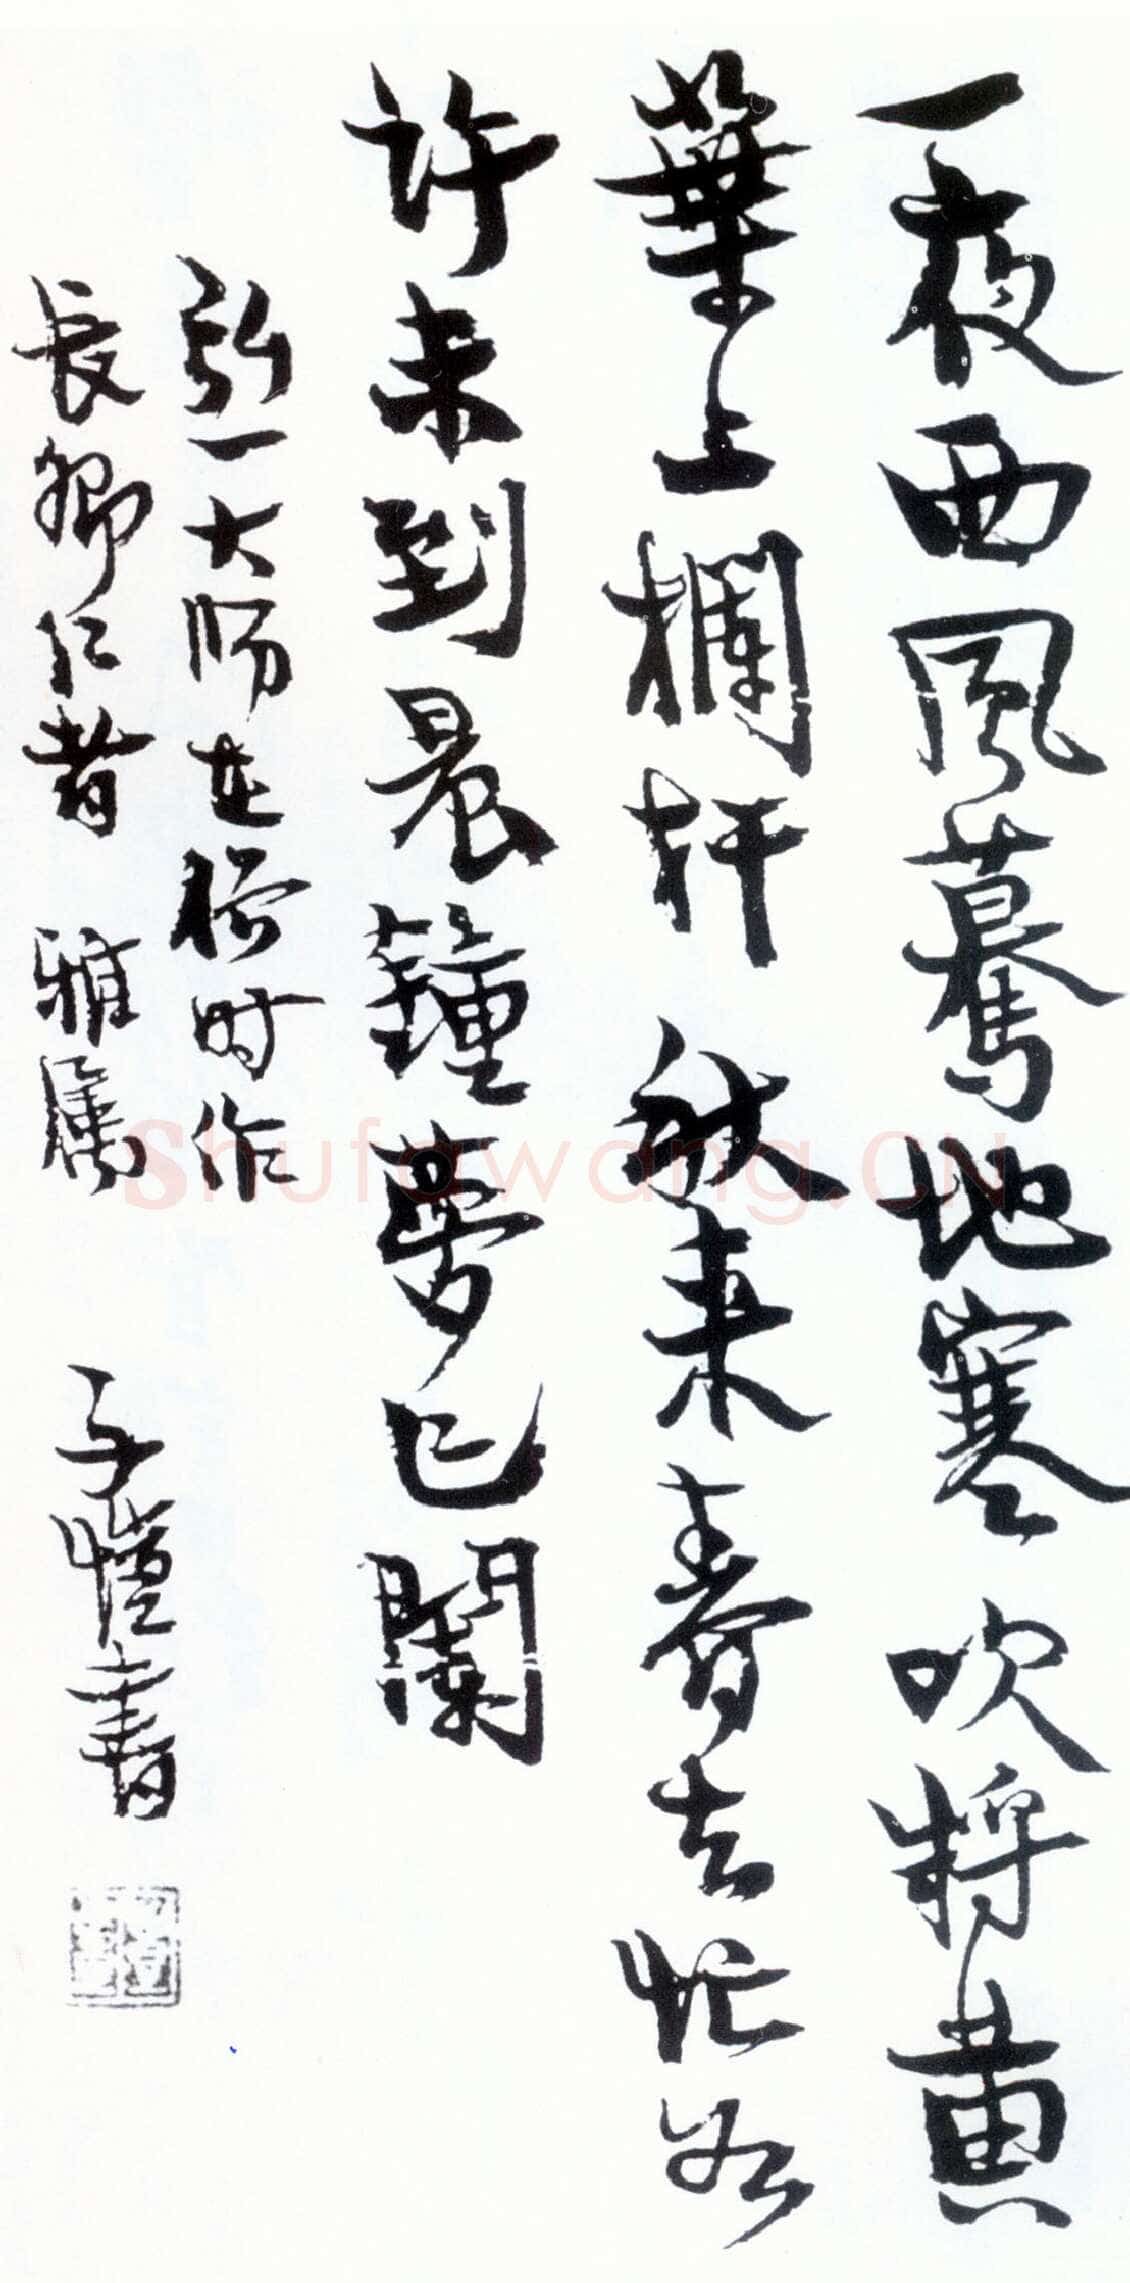 一夜西風驀地寒 吹將黄
葉上欄杆 秋來春去忙如
許未到晨鐘夢已闌
弘一大师在俗时作
長卿仁者 雅屬 子愷書
Shufawang.CN